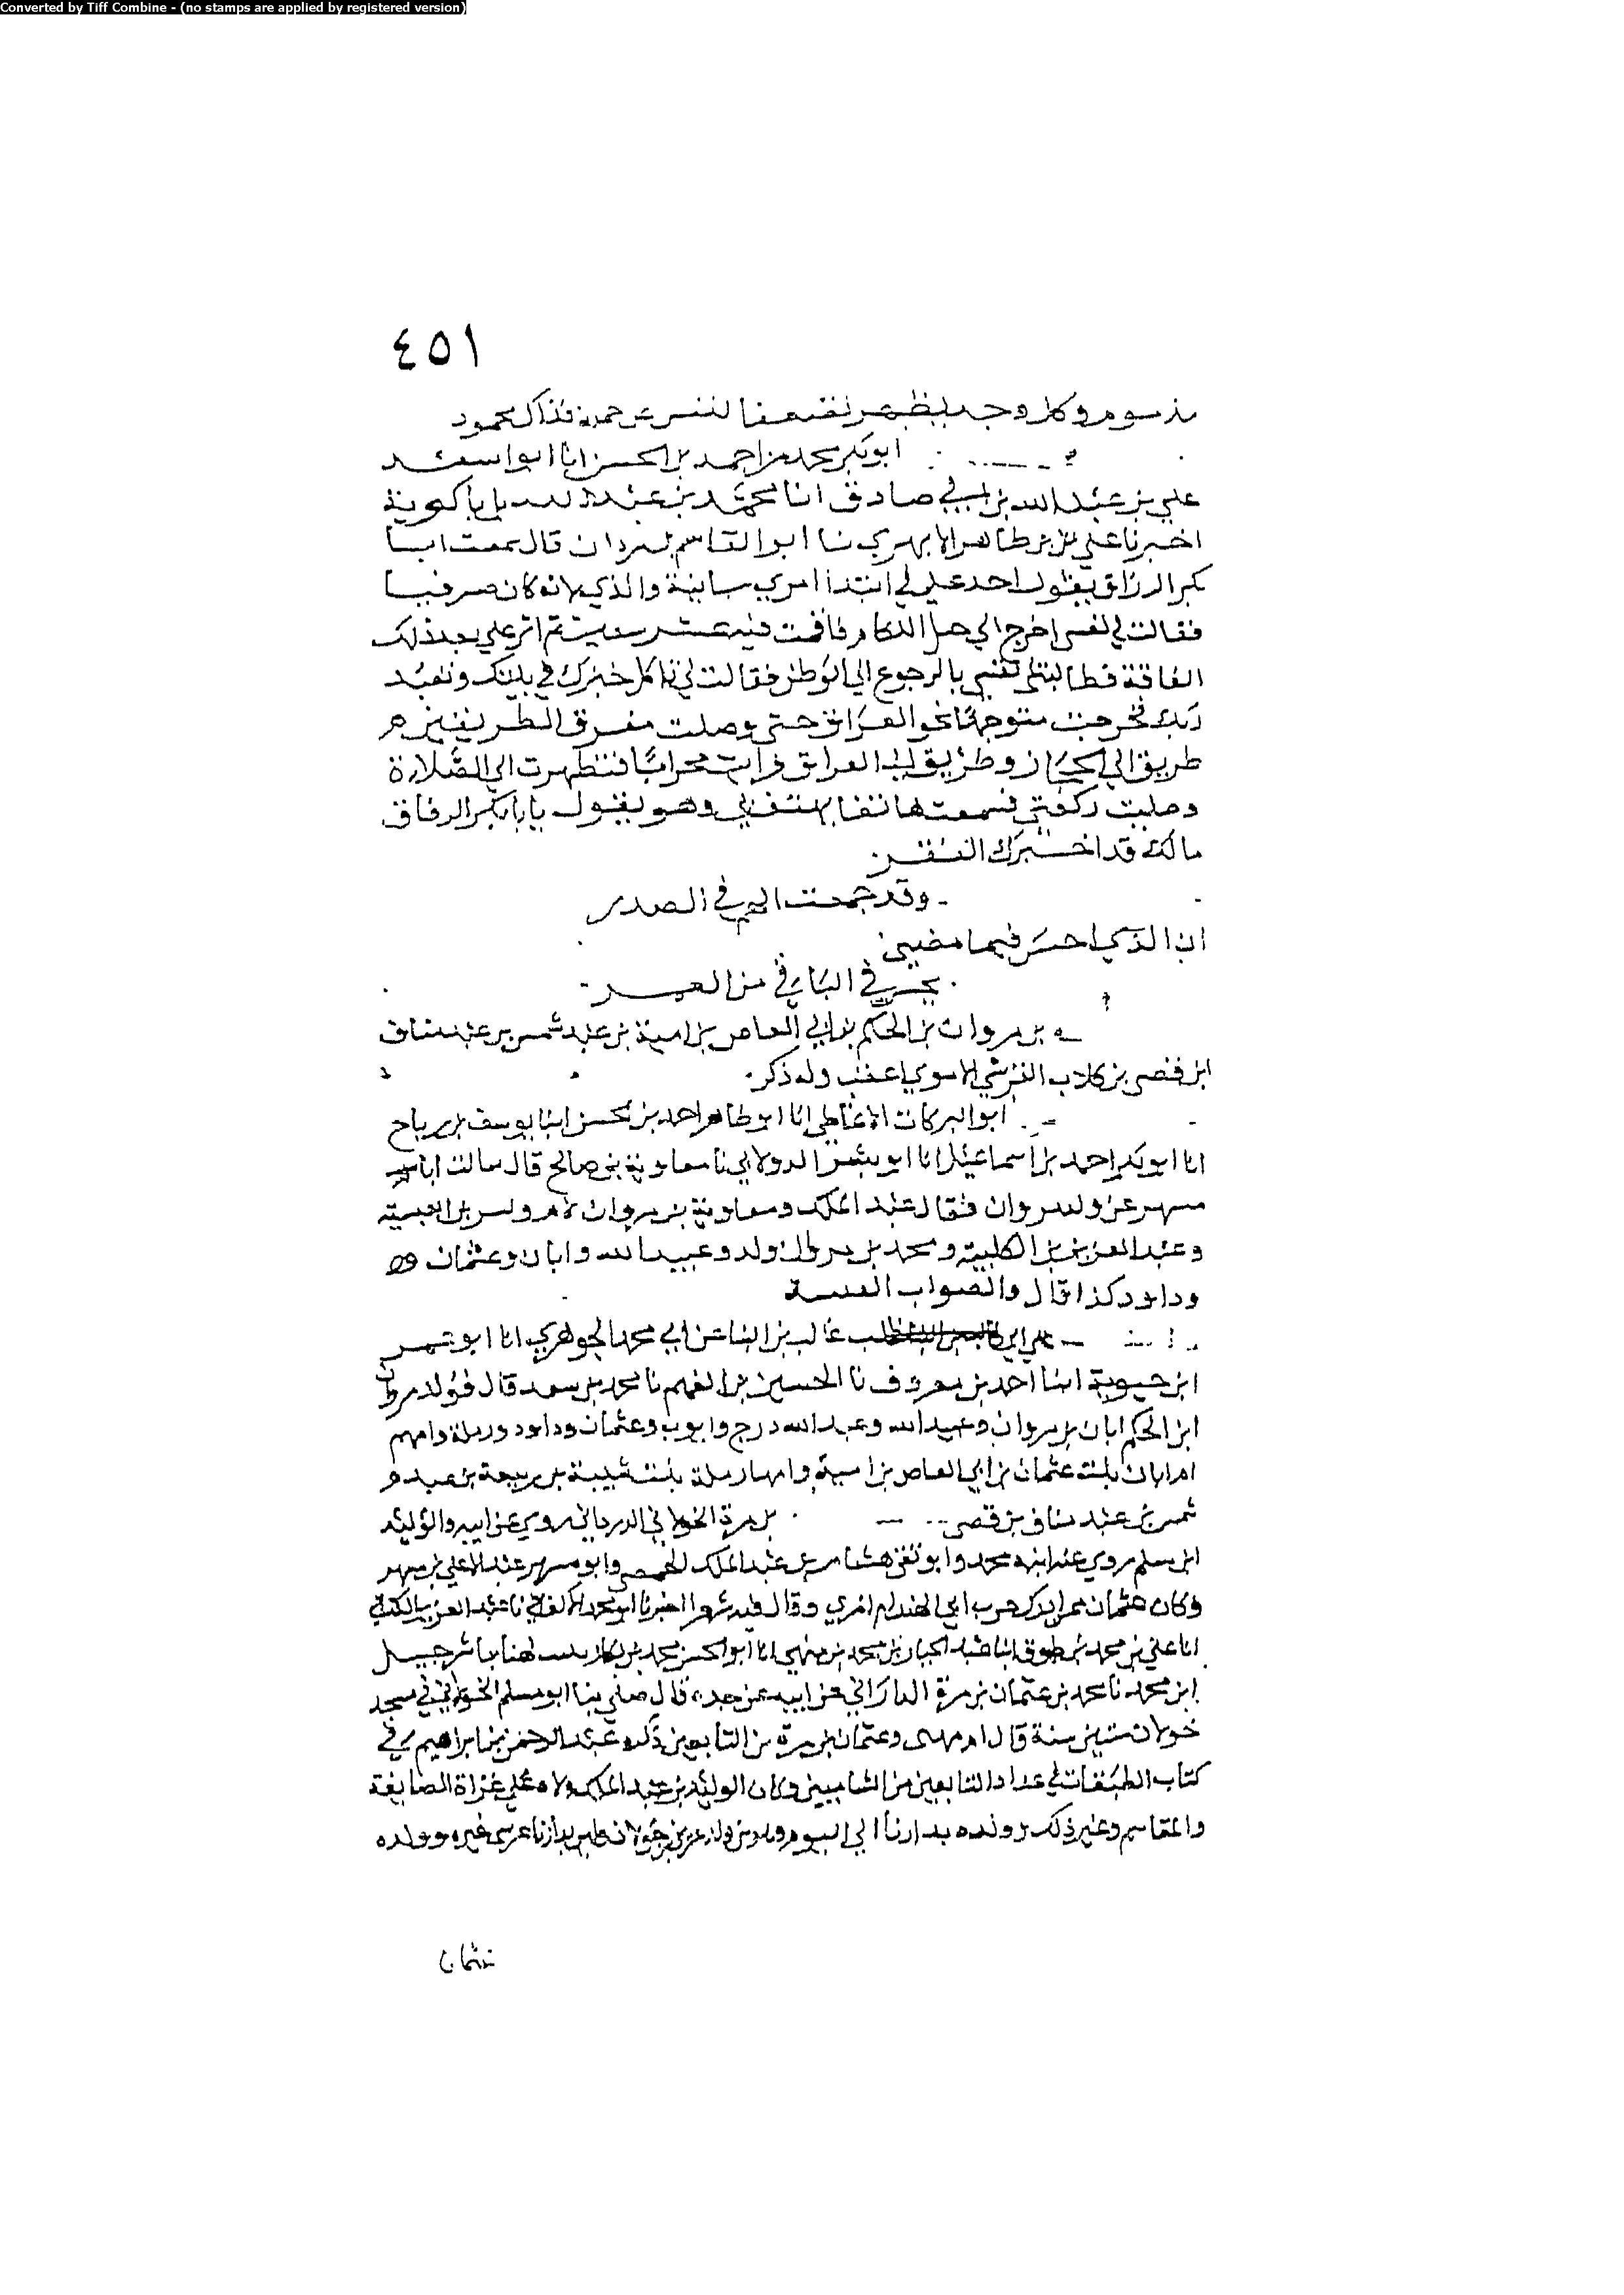 Converted by Tiff Combine - (no stamps are applied by registered version)
٤٥١
مذموم وكل وجد يظهر
ابو بكر محمد بن احمد بن الحسن انا ابو اسعد
علي بن عبد الله بن ابي صادق انا محمد بن عبد الله بن باكوية
اخبرنا علي بن طاهر الابهري نا ابو القاسم بن مردان قال سمعت ابا
بكر الرزاق يقول احد علي في ابتدا امري سابغة والذي لانه كان صرفيا
فقالت لي نفسي اخرج الي اللكام فاقمت فيه عشر سنين ثم اثر علي بعد ذلك
الفاقة فطالبتني نفسي بالرجوع الي الوطن فقالت لي تاكل خبزك في بيتك وتعبد
ربك فخرجت متوجها نحو العراق حتى وصلت مفرق الطريقين
طريق الي الحجاز وطريق الي العراق فرايت محرابا فتطهرت الي الصلاة
وصليت ركعتي فسمعت هاتفا يهتف بي وهو يقول يا ابا بكر الرقاق
مالك قد اخبرك
وقد جمعت الهم في الصدر
ان الذي احسن فيما مضي
يحسن في الباقي من العمر
بن مروان بن الحكم بن ابي العاص بن امية بن عبد شمس بن عبد مناف
ابن قصي بن كلاب القرشي الاموي اعقب وله ذكر
ابو البركات الانماطي انا ابو طاهر احمد بن الحسن انبا يوسف بن رباح
انا ابو بكر احمد بن اسماعيل انا ابو بشر الدولابي نا معاوية بن صالح قال سالت ابا
مسهر عن ولد مروان فقال عبد الملك ومعاوية بن مروان لام وبشر بن القيسية
وعبد العزيز بن الكلبية ومحمد بن مروان لام ولد وعبيد الله وابان وعثمان
وداود كذا قال والصواب القيسية
علي ابي غالب بن البنا عن ابي محمد الجوهري انا ابو عمر
ابن حيوية انبا احمد بن معروف نا الحسين بن الفهم نا محمد بن سعد قال فولد مروان
ابن الحكم ابان بن مروان وعبيد الله وعبد الله درج وايوب وعثمان وداود ورملة وامهم
ام ابان بنت عثمان بن ابي العاص بن امية وامها رملة بنت شيبة بن ربيعة بن عبد
شمس بن عبد مناف بن قصي بن مرة الخولاني الداراني روي عن ابيه والوليد
ابن مسلم روي عنه ابنه محمد وابو تقي هشام بن عبد الملك الحمصي وابو مسهر عبد الاعلي بن مسهر
وكان عثمان ممن ادرك حرب ابي الهندام المري وقال فيه شعرا اخبرنا ابو محمد الاكفاني نا عبد العزيز الكتاني
انا علي بن محمد بن طوق انبا عبد الجبار بن محمد بن مهني انا ابو الحسن محمد بن بكار بيت لهيا نا شرحبيل
ابن محمد نا محمد بن عثمان بن مرة الداراني عن ابيه عن جده قال صلي بنا ابو مسلم الخولاني في مسجد
خولان ستين سنة قال ابن مهني وعثمان بن مرة من التابعين ذكره عبد الرحمن بن ابراهيم في
كتاب الطبقات في عداد التابعين من الشاميين وكان الوليد بن عبد الملك ولاه علي غزاة الصايفة
والمقاسم وغير ذلك وولده بدارنا الي اليوم وليس غيره وولده
عثمان